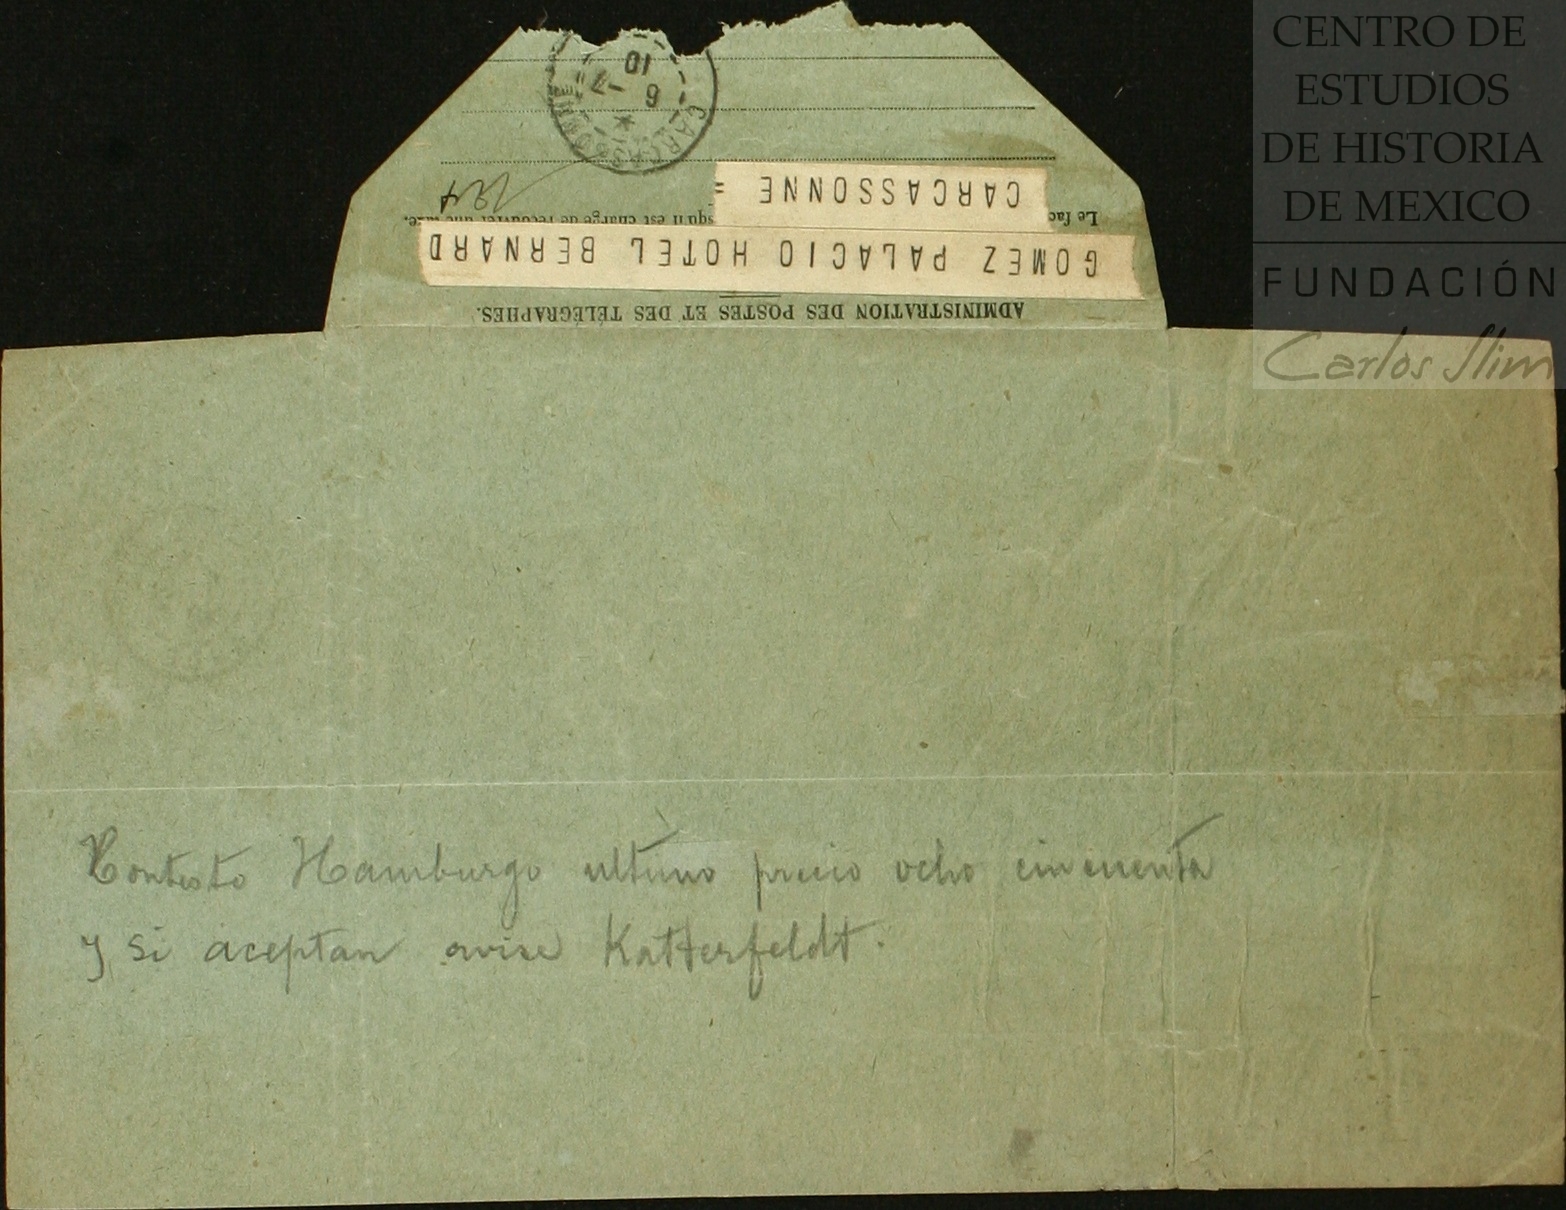 CENTRO DE
ESTUDIOS
DE HISTORIA
DE MEXICO
FUNDACIÓN
Carlos Slim
ADMINISTRATION DES POSTES ET DES TÉLÉGRAPHES.
GOMEZ PALACIO HOTEL BERNARD
Le fac squ'il est chargé de recouvrer une taxe.
CARCASSONNE =
CARCASSONNE
6 -7
10
Contesto Hamburgo ultimo precio ocho cincuenta
y si aceptan avise Katterfeldt.